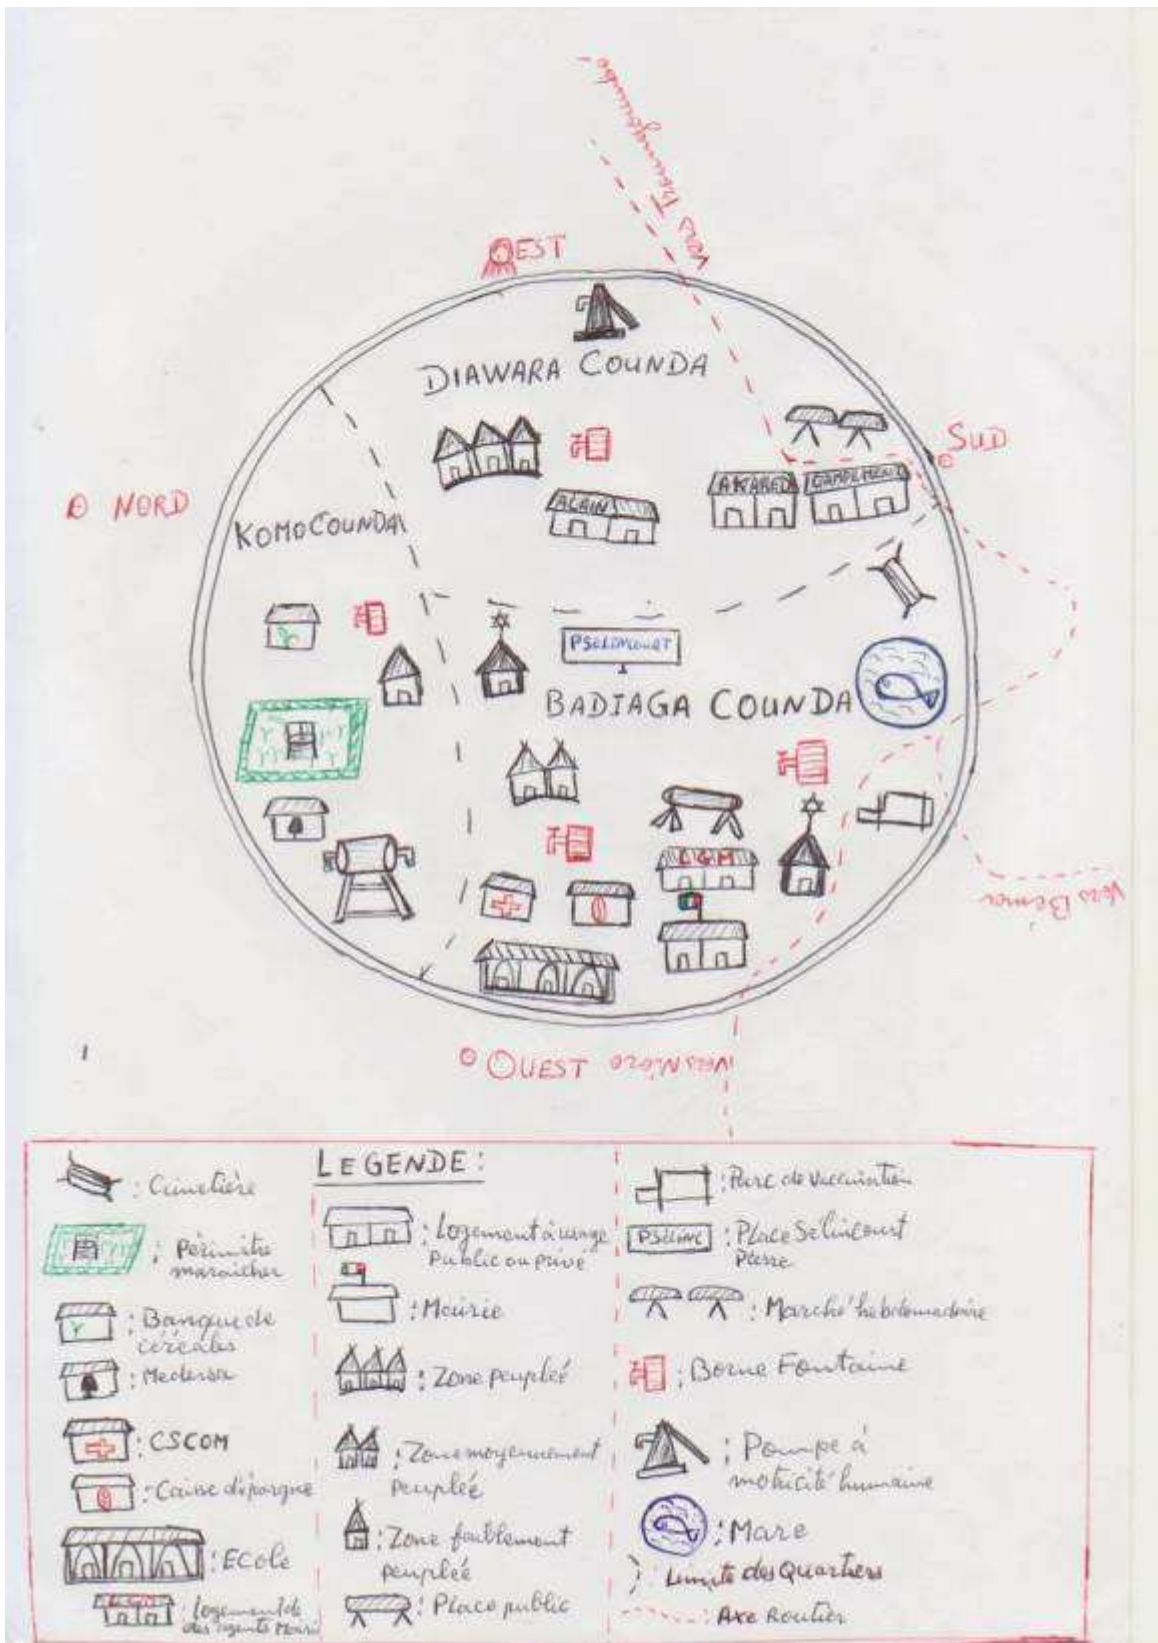 Vers Troungoumbé
EST
DIAWARA COUNDA
SUD
NORD
AKARED
CAMPEMENT
ALAIN
KOMO COUNDA
PSELINCOURT
BADIAGA COUNDA
LGM
Vers Béma
OUEST
Vers Nioro
LEGENDE :
: Cimetière
: Périmètre
maraicher
: Banque de
céréales
: Medersa
: CSCOM
: Caisse d'épargne
: ECole
LGM
: Logement de
des agents Mairie
: Logement à usage
Public ou privé
: Mairie
: Zone peupleé
: Zone moyennement
peuplée
: Zone faiblement
peuplée
: Place public
: Parc de vaccination
PSELINC
: Place Sélincourt
Pierre
: Marché hebdomadaire
: Borne Fontaine
: Pompe à
motricité humaine
: Mare
: Limite des Quartiers
: Axe Routier